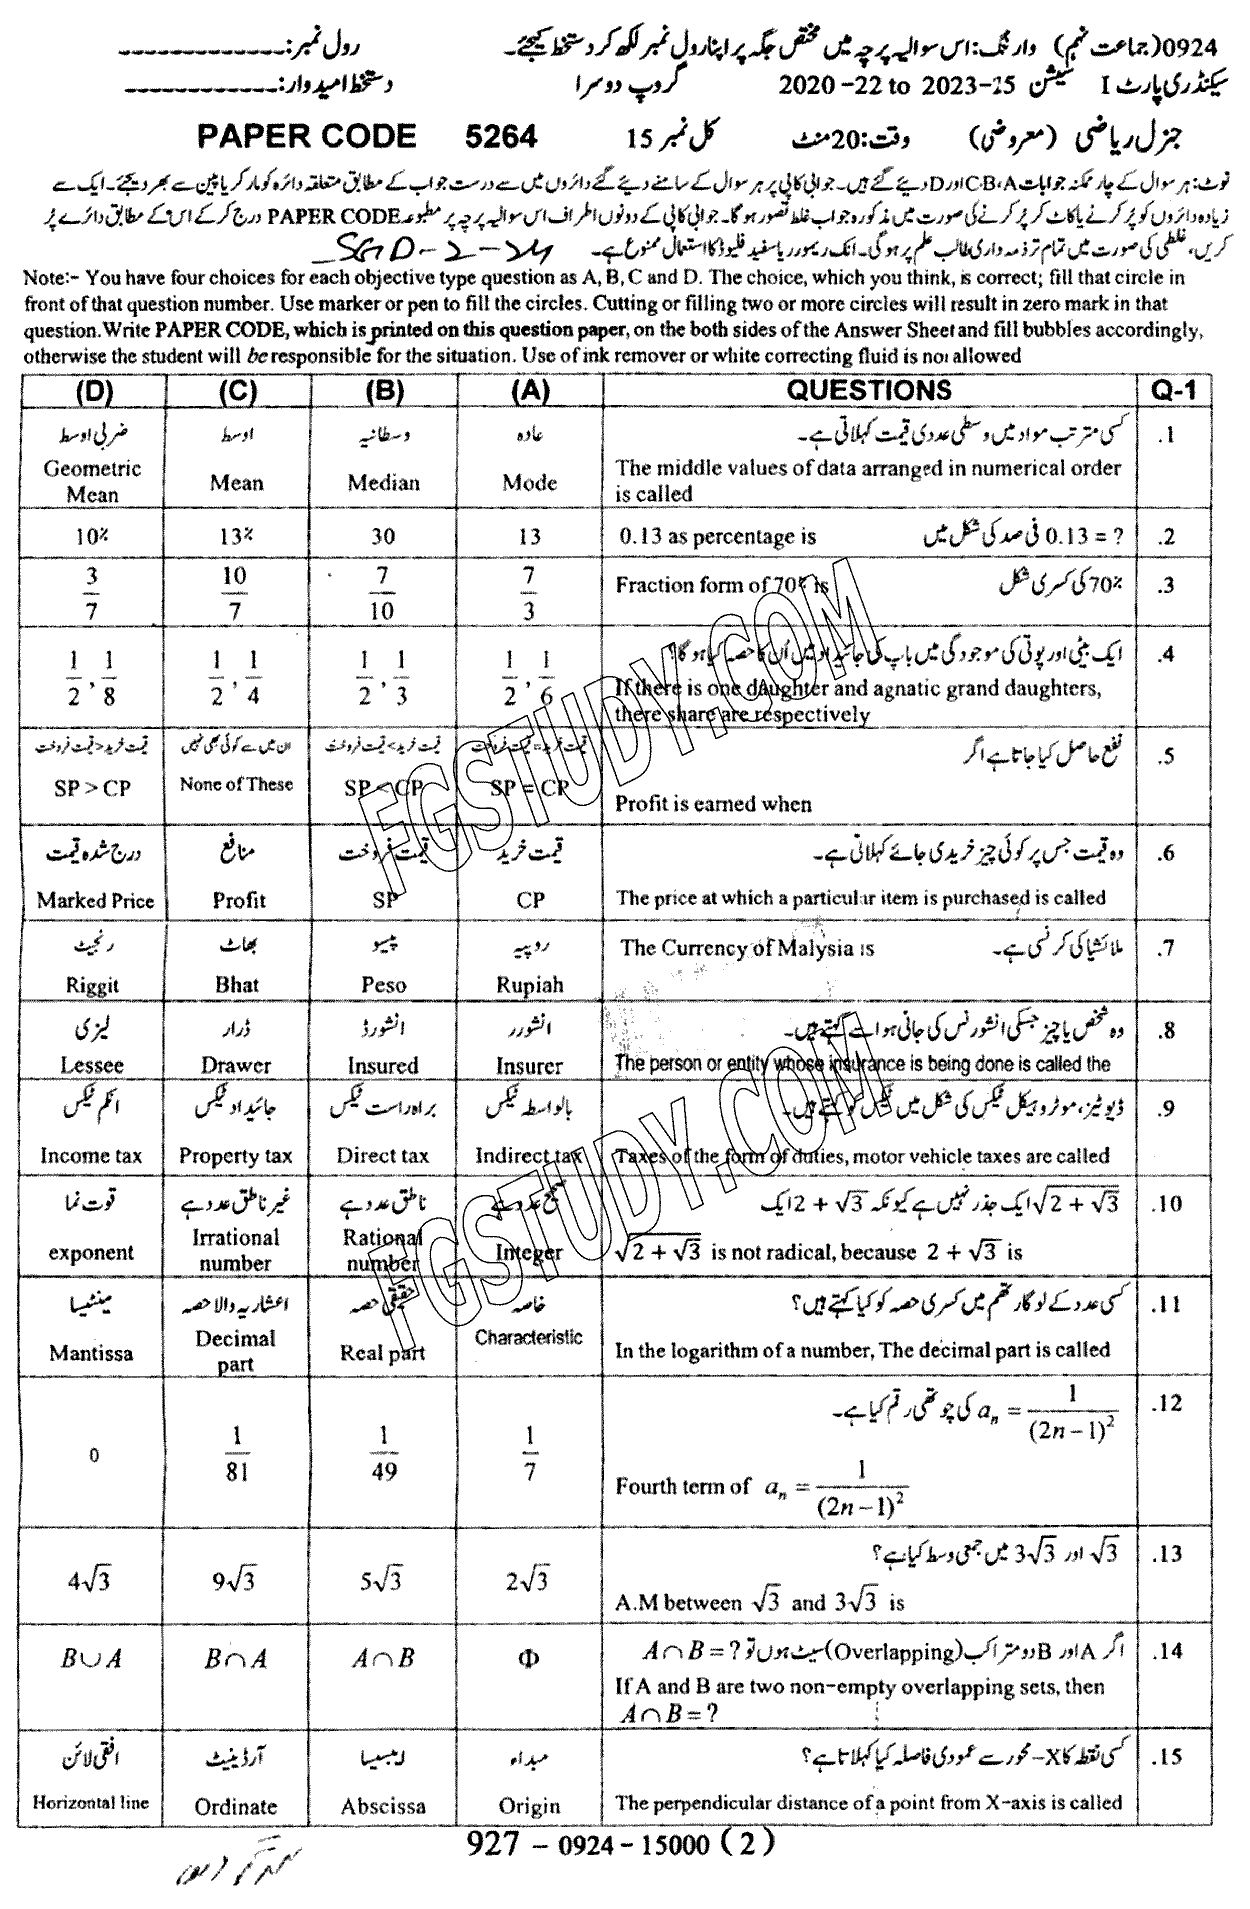 0924 (جماعت نہم) وارننگ: اس سوالیہ پرچہ میں مختص جگہ پر اپنا رول نمبر لکھ کر دستخط کیجئے۔ رول نمبر: -------------
سیکنڈری پارٹ I سیشن 2020-22 to 2023-25 گروپ دوسرا دستخط امیدوار: -------------
جنرل ریاضی (معروضی) وقت: 20 منٹ کل نمبر 15 PAPER CODE 5264
نوٹ: ہر سوال کے چار ممکنہ جوابات C،B،A اور D دیئے گئے ہیں۔ جوابی کاپی پر ہر سوال کے سامنے دیئے گئے دائروں میں سے درست جواب کے مطابق متعلقہ دائرہ کو مارکر یا پین سے بھر دیجئے۔ ایک سے
زیادہ دائروں کو پُر کرنے یا کاٹ کر پُر کرنے کی صورت میں مذکورہ جواب غلط تصور ہوگا۔ جوابی کاپی کے دونوں اطراف اس سوالیہ پرچہ پر مطبوعہ PAPER CODE درج کر کے اس کے مطابق دائرے پُر
کریں، غلطی کی صورت میں تمام تر ذمہ داری طالب علم پر ہوگی۔ انک ریموور یا سفید فلیوڈ کا استعمال ممنوع ہے۔ SGD-2-24
Note:- You have four choices for each objective type question as A, B, C and D. The choice, which you think, is correct; fill that circle in
front of that question number. Use marker or pen to fill the circles. Cutting or filling two or more circles will result in zero mark in that
question. Write PAPER CODE, which is printed on this question paper, on the both sides of the Answer Sheet and fill bubbles accordingly,
otherwise the student will be responsible for the situation. Use of ink remover or white correcting fluid is not allowed
(D) (C) (B) (A) QUESTIONS Q-1
ضربی اوسط اوسط وسطانیہ عادہ کسی مرتب مواد میں وسطی عددی قیمت کہلاتی ہے۔ .1
Geometric Mean Mean Median Mode The middle values of data arranged in numerical order
is called
10% 13% 30 13 0.13 as percentage is 0.13 = ? فی صد کی شکل میں .2
3/7 10/7 7/10 7/3 Fraction form of 70% is 70% کی کسری شکل .3
1/2, 1/8 1/2, 1/4 1/2, 1/3 1/2, 1/6 ایک بیٹی اور پوتی کی موجودگی میں باپ کی جائیداد میں اُن کا حصہ کیا ہوگا؟ .4
If there is one daughter and agnatic grand daughters,
there share are respectively
قیمت خرید<قیمت فروخت ان میں سے کوئی بھی نہیں قیمت خرید>قیمت فروخت قیمت خرید=قیمت فروخت نفع حاصل کیا جاتا ہے اگر .5
SP > CP None of These SP < CP SP = CP Profit is earned when
درج شدہ قیمت منافع قیمت فروخت قیمت خرید وہ قیمت جس پر کوئی چیز خریدی جائے کہلاتی ہے۔ .6
Marked Price Profit SP CP The price at which a particular item is purchased is called
رنجیٹ بھاٹ پیسو روپیہ The Currency of Malysia is ملائشیا کی کرنسی ہے۔ .7
Riggit Bhat Peso Rupiah
لیزی ڈرار انشورڈ انشورر وہ شخص یا چیز جسکی انشورنس کی جانی ہو اسے کہتے ہیں۔ .8
Lessee Drawer Insured Insurer The person or entity whose insurance is being done is called the
انکم ٹیکس جائیداد ٹیکس براہ راست ٹیکس بالواسطہ ٹیکس ڈیوٹیز، موٹر وہیکل ٹیکس کی شکل میں ٹیکس کو کہتے ہیں۔ .9
Income tax Property tax Direct tax Indirect tax Taxes of the form of duties, motor vehicle taxes are called
قوت نما غیر ناطق عدد ہے ناطق عدد ہے صحیح عدد ہے √(2 + √3) ایک جذر نہیں ہے کیونکہ 2 + √3 ایک .10
exponent Irrational number Rational number Integer √(2 + √3) is not radical, because 2 + √3 is
مینٹیسا اعشاریہ والا حصہ حقیقی حصہ خاصہ کسی عدد کے لوگارتھم میں کسری حصہ کو کیا کہتے ہیں؟ .11
Mantissa Decimal part Real part Characteristic In the logarithm of a number, The decimal part is called
aₙ = 1/(2n−1)² کی چوتھی رقم کیا ہے۔ .12
0 1/81 1/49 1/7 Fourth term of aₙ = 1/(2n−1)²
√3 اور 3√3 میں جمعی وسط کیا ہے؟ .13
4√3 9√3 5√3 2√3 A.M between √3 and 3√3 is
B∪A B∩A A∩B Φ اگر A اور B دو متراکب (Overlapping) سیٹ ہوں تو A∩B = ? .14
If A and B are two non-empty overlapping sets, then
A∩B = ?
افقی لائن آرڈینیٹ ایبسیسا مبداء کسی نقطہ کا X- محور سے عمودی فاصلہ کیا کہلاتا ہے؟ .15
Horizontal line Ordinate Abscissa Origin The perpendicular distance of a point from X-axis is called
927 - 0924 - 15000 (2)
FGSTUDY.COM
FGSTUDY.COM